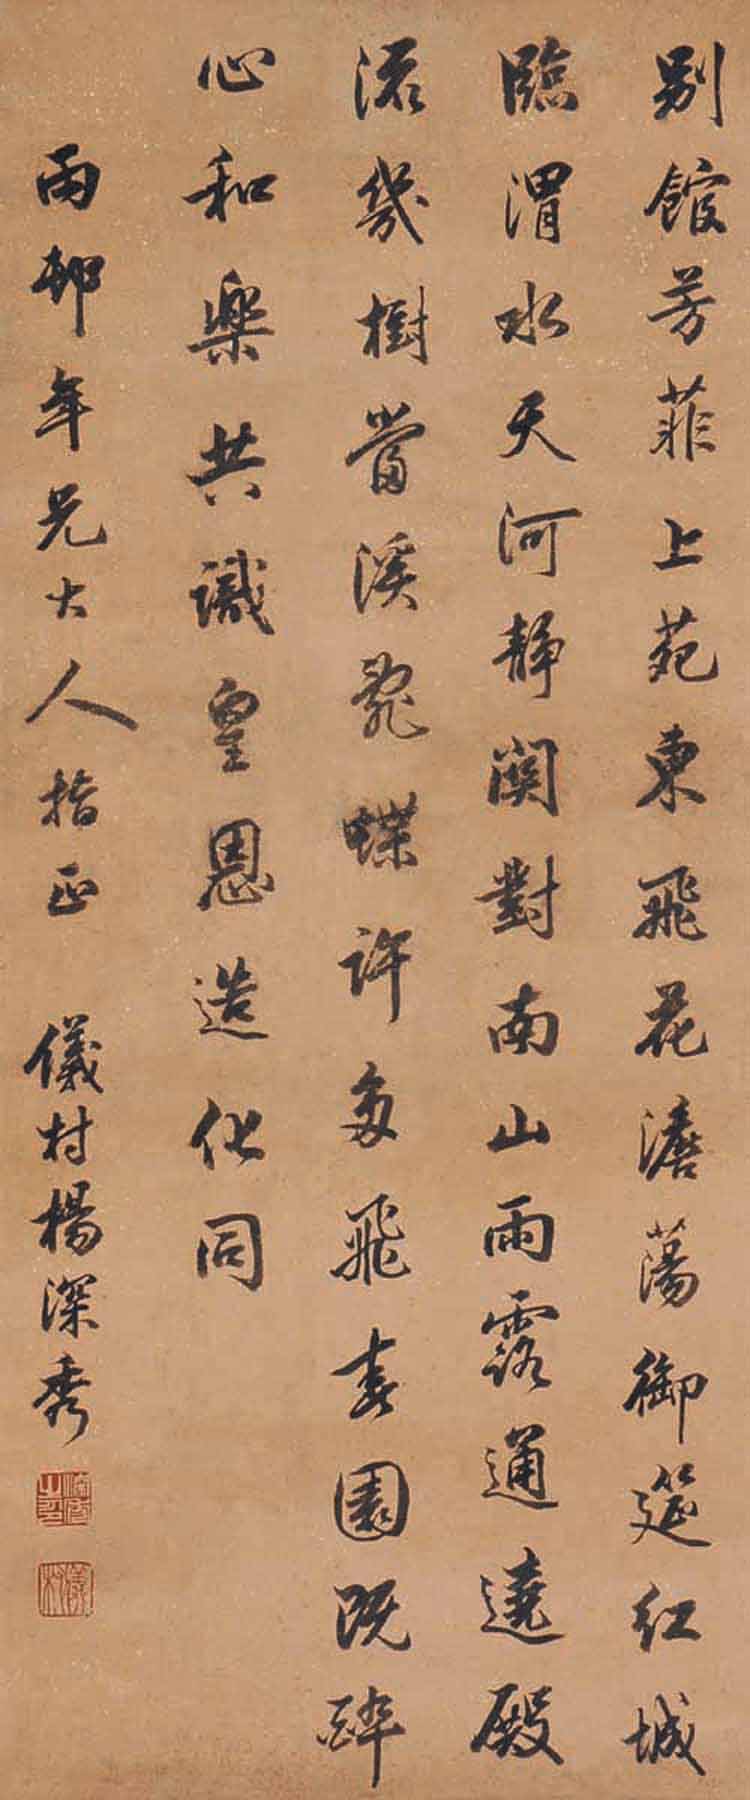 別館芳菲上苑東飛花澹蕩御筵紅城
臨渭水天河靜闕對南山雨露通遶殿
流幾樹當溪亂蝶許多飛春園既醉
心和樂共識皇恩造化同
雨邨年兄大人指正 儀村楊深秀
深秀之印
儀村